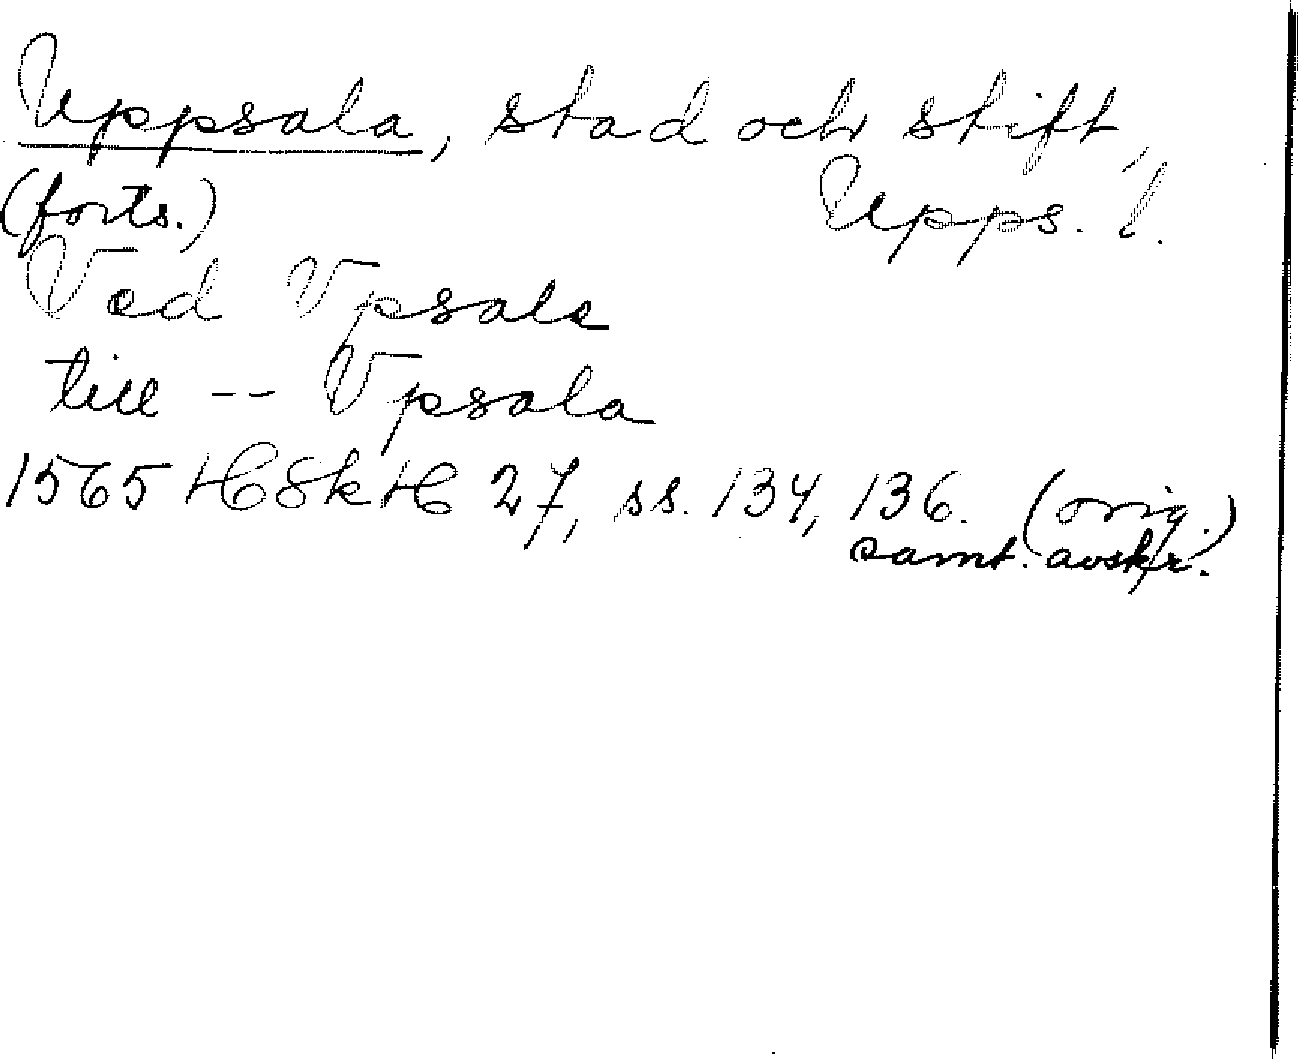 Uppsala, stad och stift,
(forts.) Upps. l.
Ved Vpsala
till -- Vpsala
1565 HSkH 27, ss. 134, 136. (orig.)
samt. avskr.